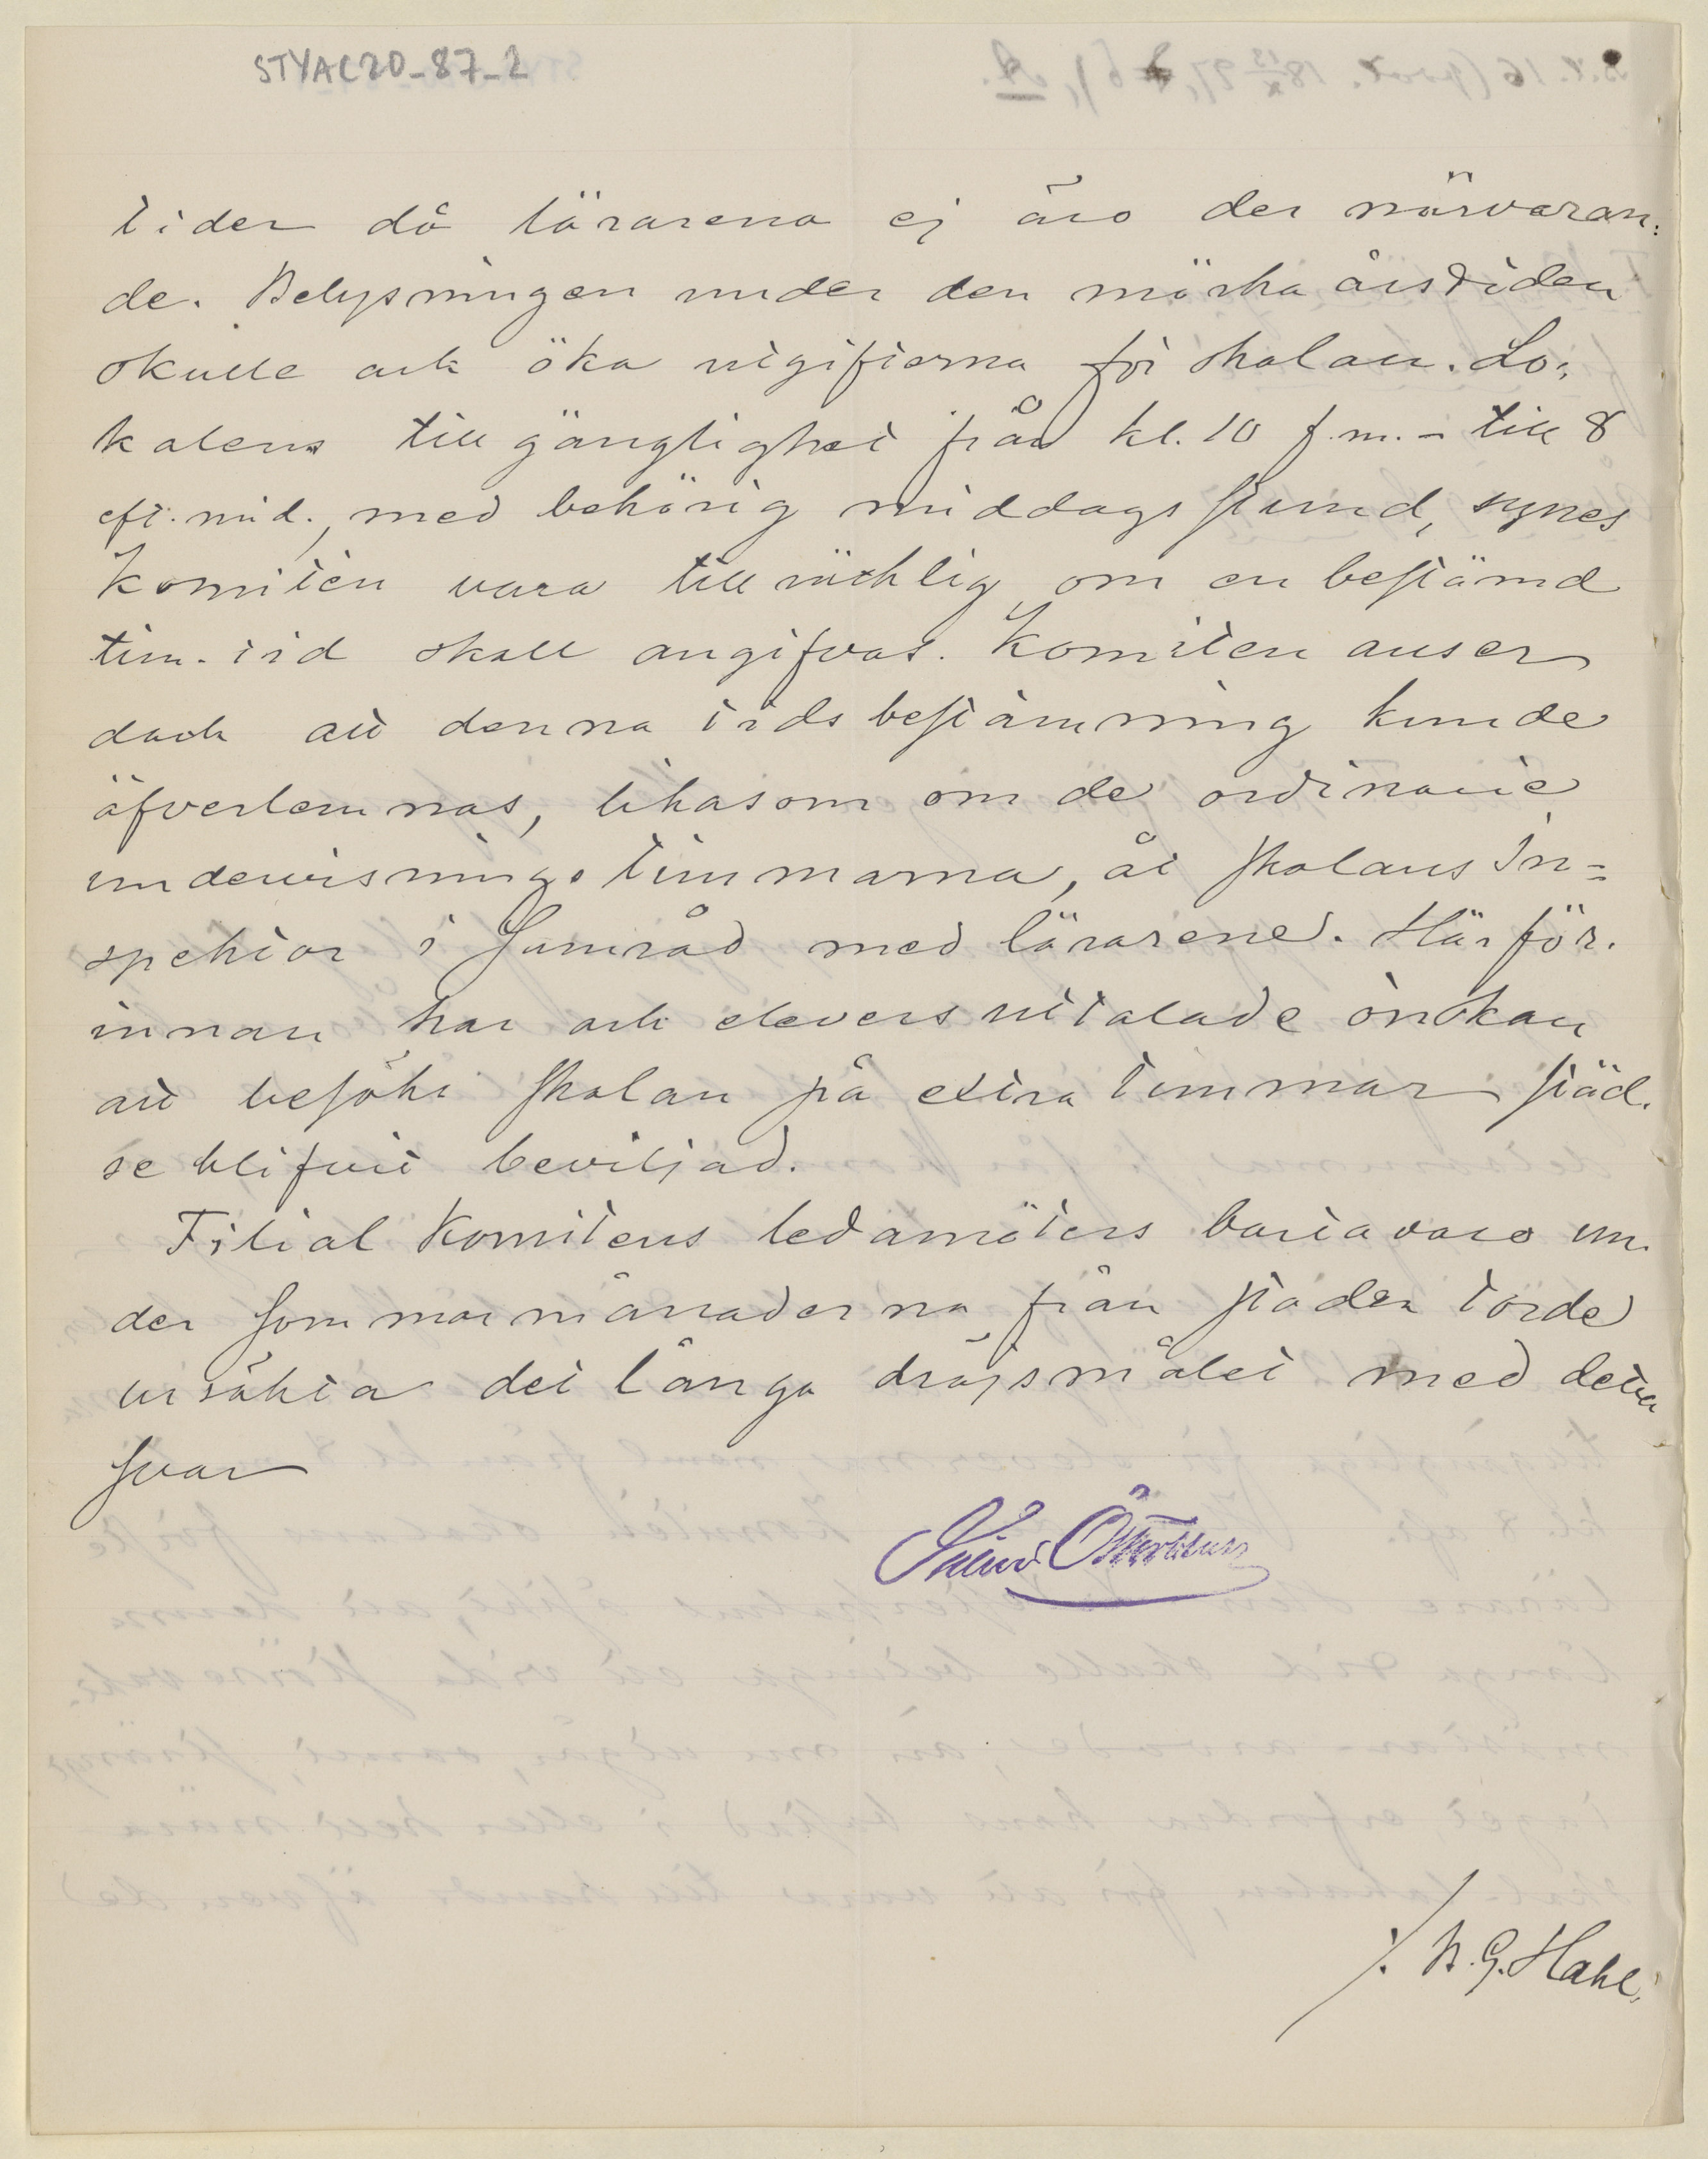 STYAC20_87_2
tider då lärarena ej äro der närvaran:
de. Belysningen under den mörka årstiden
skulle ock öka utgifterna för skolan. Lo:
kalens tillgänglighet från kl. 10 f.m. - till 8
eft. mid., med behörig middagsstund, synes
Komitén vara tillräcklig, om en bestämd
tim. tid skall angifvas. Komiten anser
dock att denna tidsbestämning kunde
öfverlemnas, likasom om de ordinarie
undervisningstimmarna, åt skolans In=
spektor i samråd med lärarene. Härför.
innan har ock elevers uttalade önskan
att besöka skolan på extra timmar städ.
se blifvit beviljad.
Filial Komitens ledamöters bortavaro un.
der sommarmånaderna från staden torde
ursäkta det långa dröjsmålet med detta
svar
Österblom
/. B. G. Hahl.